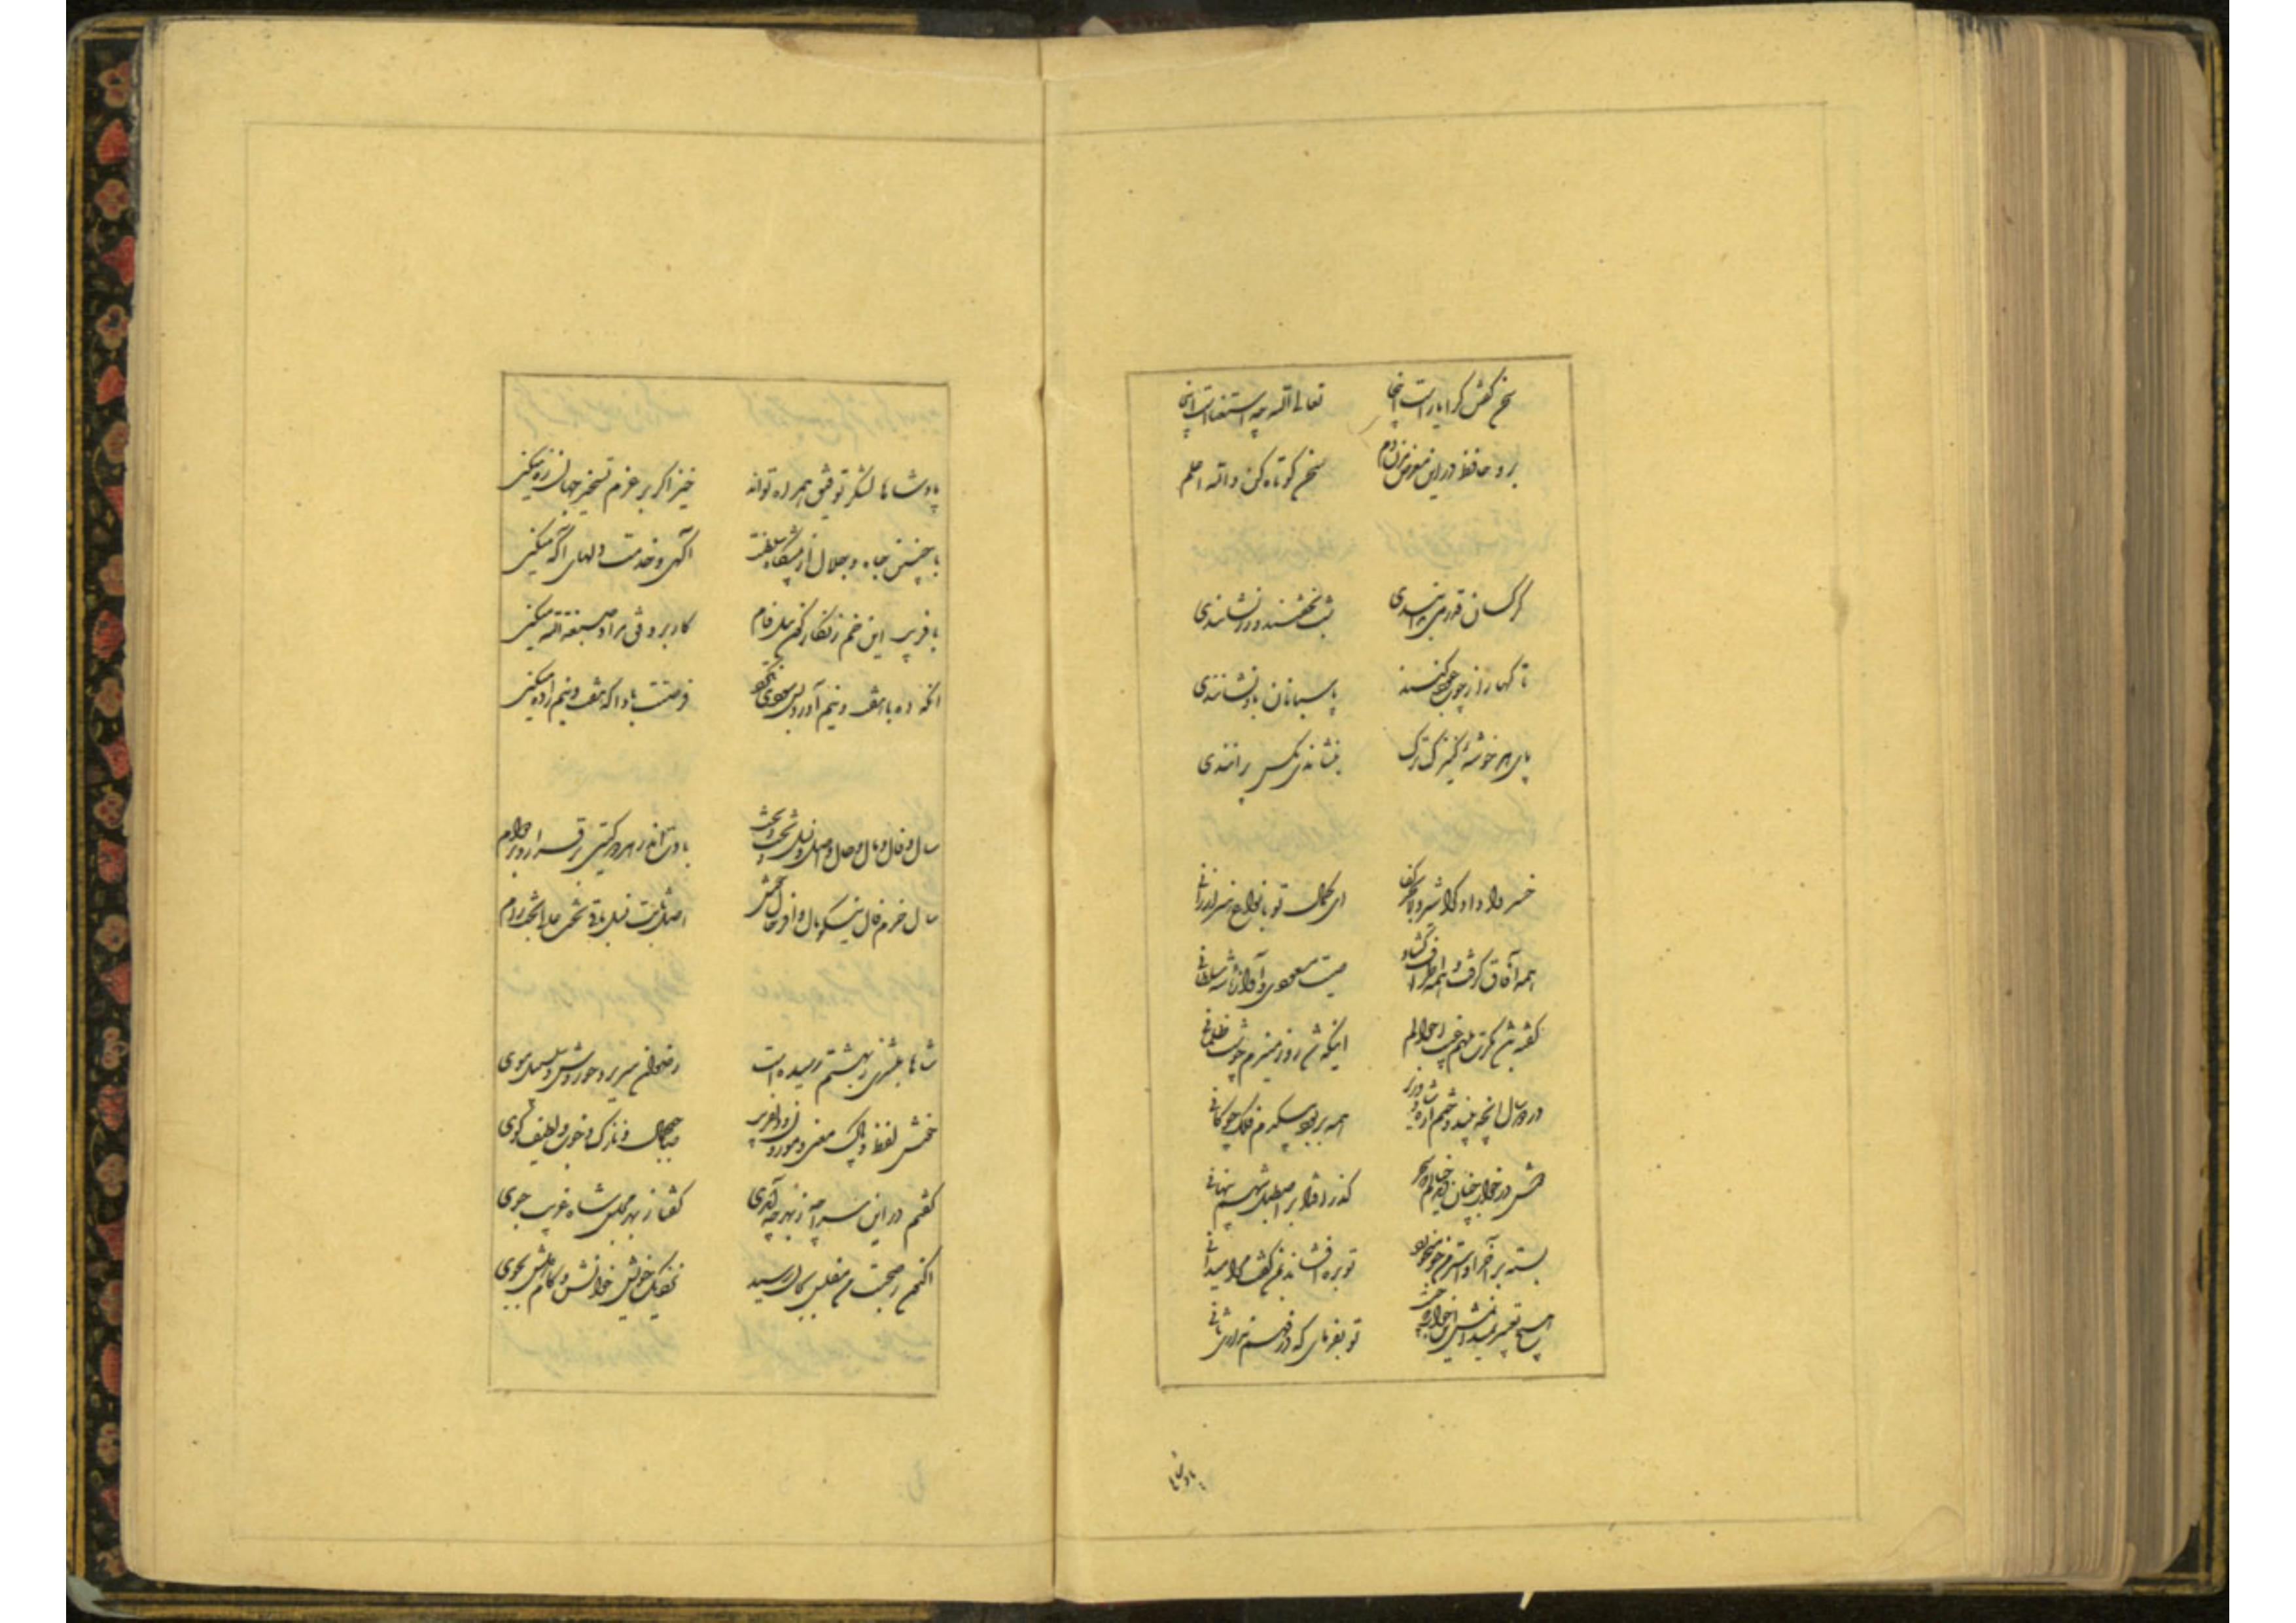 سخن گفتن کرا یاراست اینجا تعالی الله چه استغناست اینجا
برو حافظ درین معرض مزن دم سخن کوتاه کن والله اعلم
گر کسان قدر می بدانندی شب نخفتند و رز نشانندی
تا کهار از رز چون کنند پاسبانان باو نشانندی
پای هر خوشه کنیزک ترک بنشاندی مکس براندی
خسروا دادکرا شیردلا بحرکفا ای کمال تو بانواع هنر ارزانی
همه آفاق گرفت و همه اطراف گشاد صیت مسعودی و آوازه شه سلطانی
گفته باشد مگرت ملهم غیب احوالم اینکه شد روز منیرم چو شب ظلمانی
در دو سال آنچه بیندوختم از شاه و وزیر همه بربود بیکدم فلک چوگانی
دوش در خواب چنان دید خیالم که سحر گذر افتاد بر اصطبل شهم پنهانی
بسته بر آخر او استر من جو میخورد توبره افشاند بمن گفت مرا میدانی
هیچ تعبیر نمیدانمش این خواب که چیست تو بفرمای که در فهم نداری ثانی
پادشاها
پادشاها لشکر توفیق همراه تواند خیز اگر بر عزم تسخیر جهان ره میکنی
با چنین جاه و جلال از پیشگاه سلطنت آگهی و خدمت دلهای آگه میکنی
با فریب این خم زنگارگون نیل فام کار بر وفق مراد صبغة الله میکنی
آنکه ده با هفت و نیم آورد بس سودی نکرد فرصتت بادا که هفت و نیم را ده میکنی
سال و فال و مال و حال و اصل و نسل و تخت و بخت بادت اندر هر دو گیتی برقرار و بر دوام
سال خرم فال نیکو مال وافر حال خوش اصل ثابت نسل باقی تخت عالی بخت رام
شاها مبشری ز بهشتم رسیده است رضوان سریر و حوروش و سلسبیل موی
خوش لفظ و پاک معنی و موزون و دلپذیر صاحب جمال و نازک و خوب و لطیفه گوی
گفتم در این سراچه ز بهر چه آمدی گفتا ز بهر مجلس شاه غریب جوی
اکنون ز صحبت من مفلس بجان رسید نزدیک خویش خوانش و کام دلش بجوی